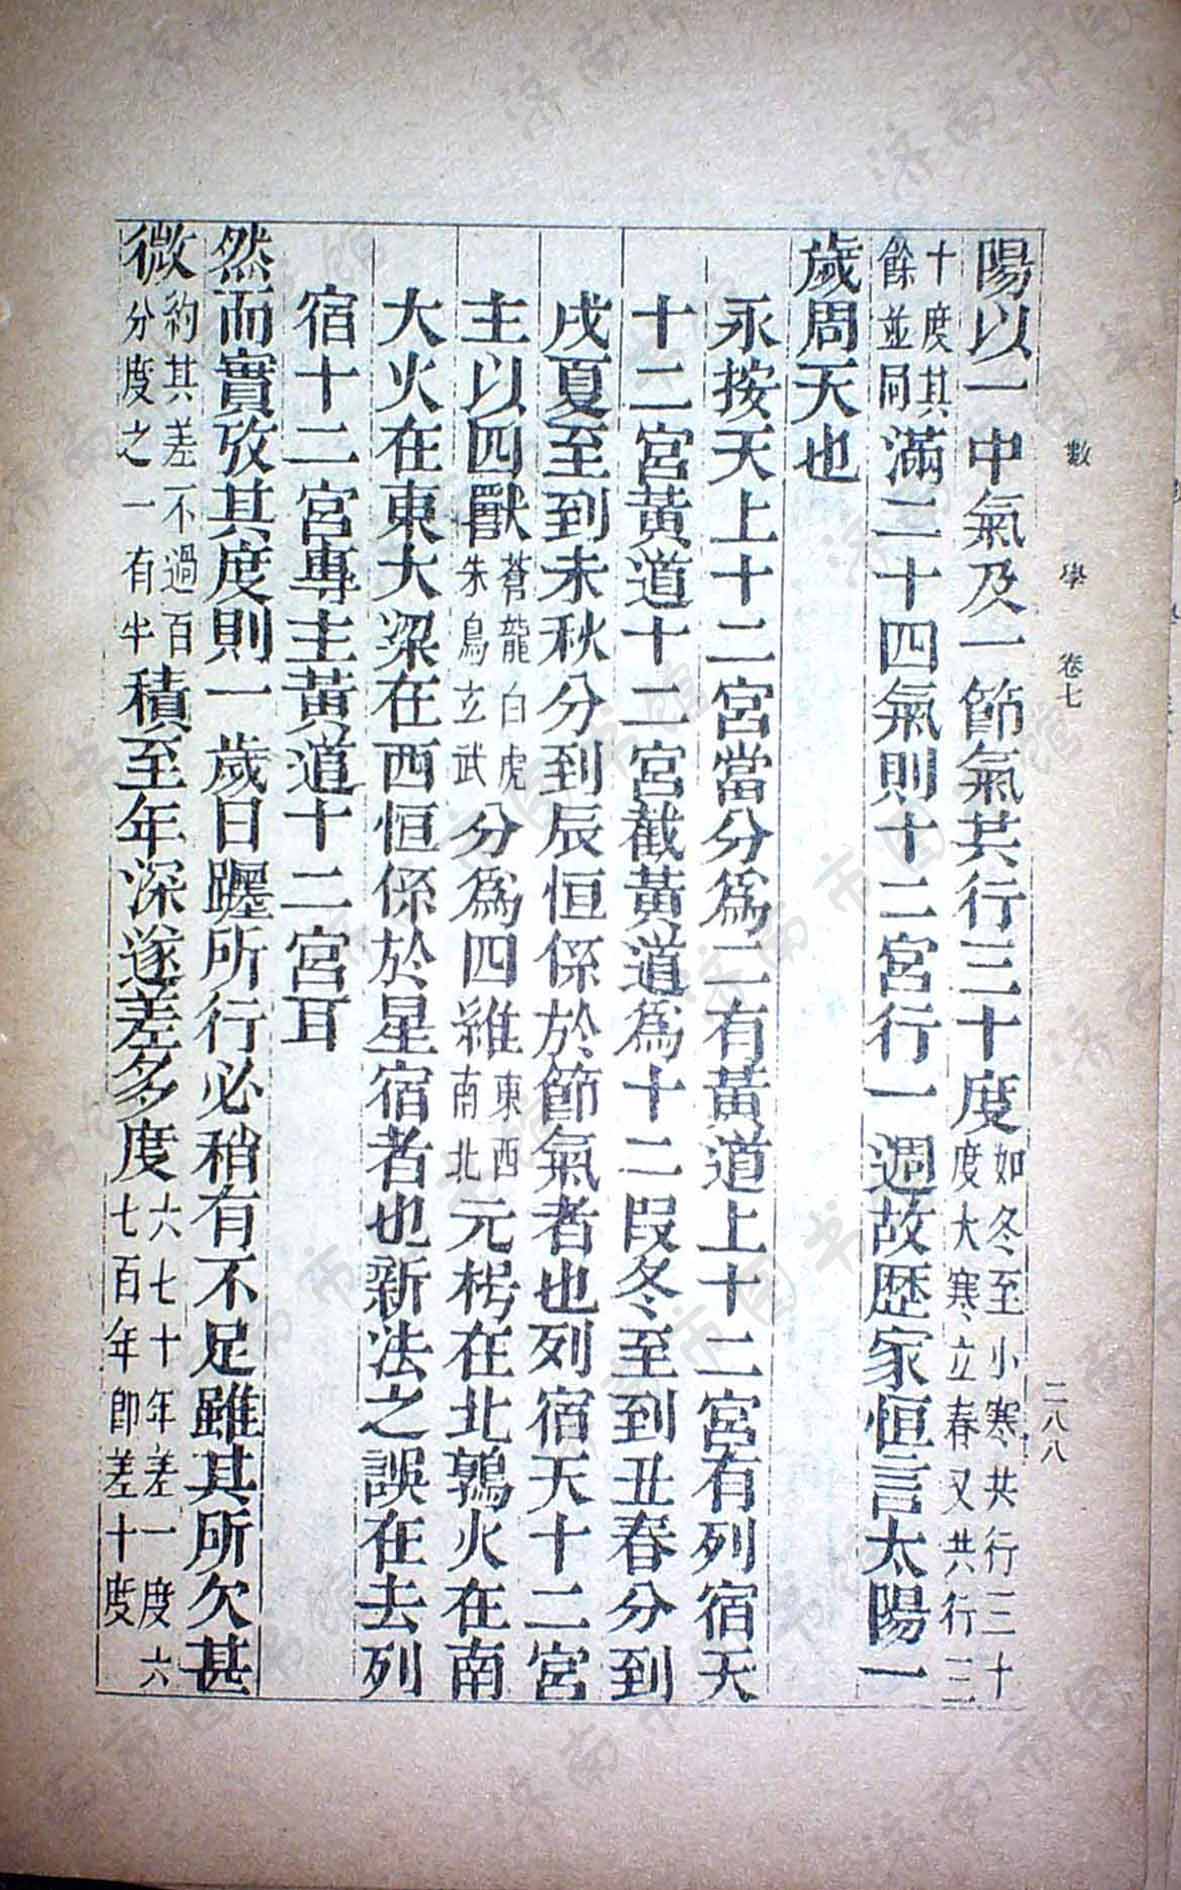 數學 卷七 二八八
陽以一中氣及一節氣共行三十度如冬至小寒共行三十度大寒立春又共行三
十度其餘並同滿二十四氣則十二宮行一週故歷家恒言太陽一
歲周天也
永按天上十二宮當分爲二有黃道上十二宮有列宿天
十二宮黃道十二宮截黃道爲十二段冬至到丑春分到
戌夏至到未秋分到辰恒係於節氣者也列宿天十二宮
主以四獸蒼龍白虎朱鳥玄武分爲四維東西南北元枵在北鶉火在南
大火在東大梁在西恒係於星宿者也新法之誤在去列
宿十二宮專主黃道十二宮耳
然而實攷其度則一歲日躔所行必稍有不足雖其所欠甚
微約其差不過百分度之一有半積至年深遂差多度六七十年差一度六七百年卽差十度
济南市图书馆